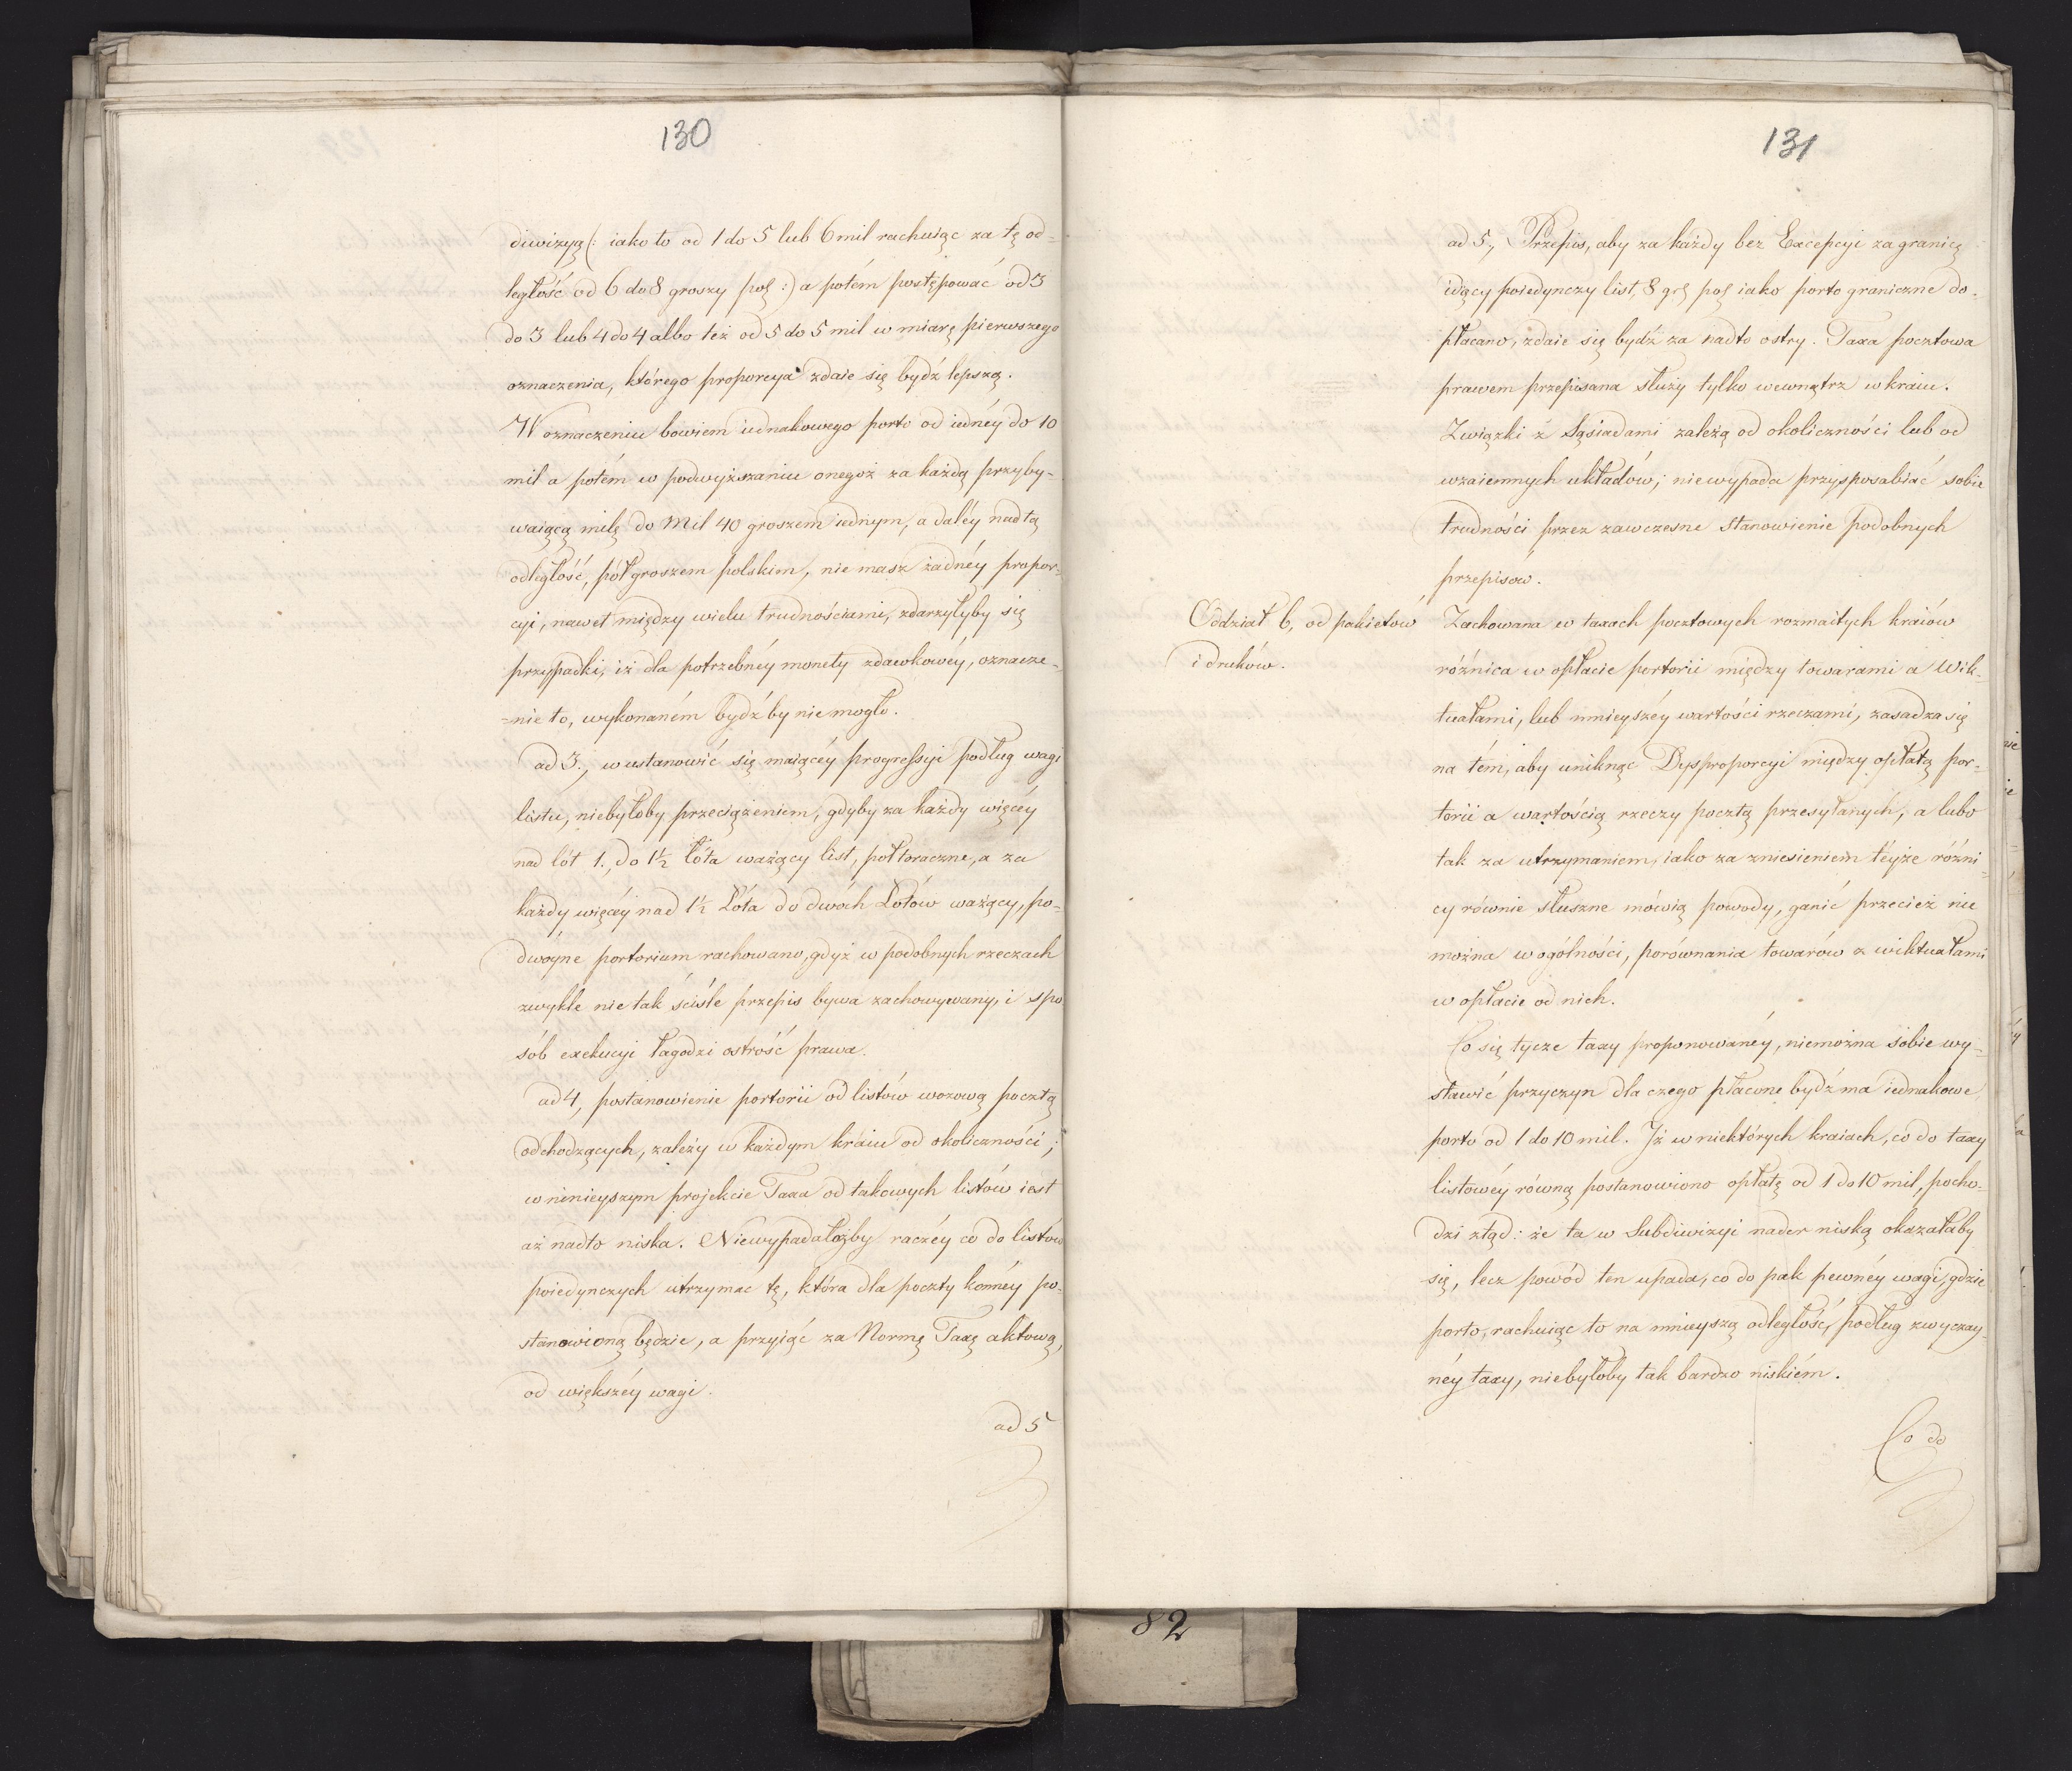 130
diwizyą (: iako to od 1 do 5 lub 6 mil rachuiąc za tę od-
ległość od 6 do 8 groszy pol :) a potém postępować od 3
do 3 lub 4 do 4 albo też od 5 do 5 mil w miarę pierwszego
oznaczenia, którego proporcya zdaie się bydź lepszą.
W oznaczeniu bowiem iednakowego porto od iednéy do 10
mil a potém w podwyższaniu onegoż za każdą przyby-
waiącą milę do Mil 40 groszem iednym, a daléy nad tą
odległość, pół groszem polskim, nie masz żadnéy propor-
cyi, nawet między wielu trudnościami, zdarzyłyby się
przypadki, iż dla potrzebnéy monety zdawkowéy, oznacze-
=nie to, wykonaném bydź by nie mogło.
ad 3., w ustanowić się maiącéy progressyi podług wagi
listu, niebyłoby przeciążeniem, gdyby za każdy więcéy
nad lót 1., do 1½ łóta ważący list, półtoraczne, a za
każdy więcéy nad 1½ Lóta do dwóch Lotów ważący, po-
dwóyne portorium rachowano, gdyż w podobnych rzeczach
zwykle nie tak ściśle przepis bywa zachowywany, i spo
sób exekucyi łagodzi ostrość prawa.
ad 4, postanowienie portorii od listów wozową pocztą
odchodzących, zależy w każdym kráiu od okoliczności;
w ninieyszym projekcie Taxa od takowych listów iest
aż nadto niska. Niewypadałożby raczéy co do listow
poiedynczych utrzymać tę, która dla poczty konnéy po-
stanowioną będzie, a przyiąć za Normę Taxę aktową,
od większéy wagi.
ad 5
131
ad 5., Przepis, aby za każdy bez Excepcyi zagranicę
idący poiedynczy list, 8 gr pol iako porto graniczne do-
płacano, zdaie się bydź za nadto ostry. Taxa pocztowa
prawem przepisana służy tylko wewnątrz w kraiu.
Związki z Sąsiadami zależą od okoliczności lub od
wzaiemnych układów; niewypada przysposabiać sobie
trudności przez zawczesne stanowienie podobnych
przepisow.
Oddział 6, od pakietów
i druków.
Zachowana w taxach pocztowych rozmaitych kraiów
różnica w opłacie portorii między towarami a Wik-
tuałami, lub mnieyszéy wartości rzeczami, zasadza się
na tém, aby uniknąc Dysproporcyi między opłatą por-
torii a wartością rzeczy pocztą przesyłanych, a lubo
tak za utrzymaniem, iako za zniesieniem téyże różni
cy równie słuszne mówią powody, ganić przecież nie
można w ogólności, porównania towarów z wiktuałami
w opłacie od nich.
Co się tycze taxy proponowanéy, niemożna sobie wy-
stawić przyczyn dla czego płacone bydź ma iednakowe
porto od 1 do 10 mil. Iż w niektórych kraiach, co do taxy
listowéy równą postanowiono opłatę od 1 do 10 mil, pocho-
dzi ztąd: że ta w Subdiwizyi nader niską okazałaby
się, lecz powód ten upada, co do pak pewnéy wagi, gdzie
porto, rachuiąc to na mnieyszą odległość, podług zwyczay-
néy taxy, niebyłoby tak bardzo niskiém.
Co do
82